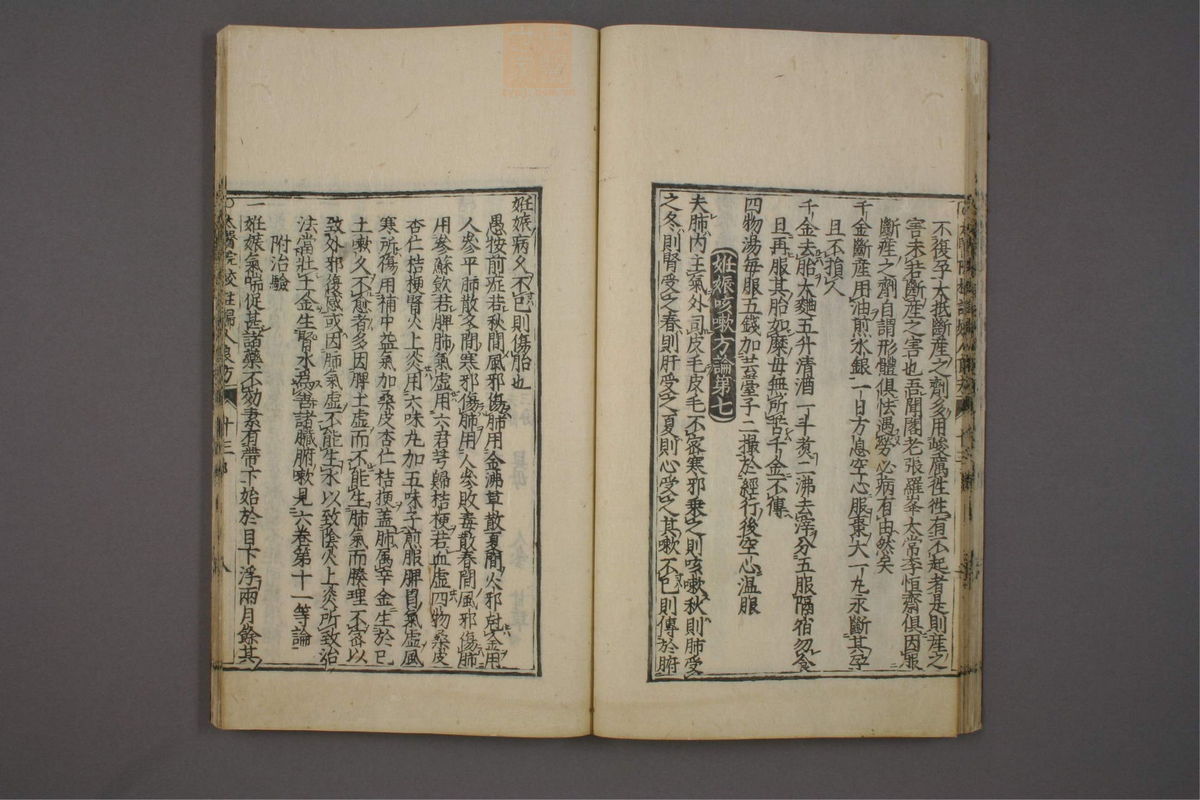 不復孕大抵斷産之劑多用峻厲性性有不起者是則産之
害未若斷産之害也吾聞閣老張羅峯太常李恒齋俱因服
斷産之劑自謂形體俱怯遇勞必病有由然矣
千金斷産用油煎水銀一日方息空心服棗大一丸永斷其孕
且不損人
千金去胎大麵五升清酒一斗煮二沸去滓分五服隔宿勿食
且再服其胎如糜毋無所苦千金不傳
四物湯每服五錢加芸薹子二撮於經行後空心温服
姙娠咳嗽方論第七
夫肺内主氣外司皮毛皮毛不密寒邪乗之則咳嗽秋則肺受
之冬則腎受之春則肝受之夏則心受之其嗽不已則傳於腑
姙娠病久不已則傷胎也
愚按前症若秋間風邪傷肺用金沸草散夏間火邪尅金用
人參平肺散冬間寒邪傷肺用人參敗毒散春間風邪傷肺
用參蘇飲若脾肺氣虚用六君芎歸桔梗若血虚四物桑皮
杏仁桔梗腎火上炎用六味丸加五味子煎服脾胃氣虚風
寒所傷用補中益氣加桑皮杏仁桔梗蓋肺属辛金生於已
土嗽久不愈者多因脾土虚而不能生肺氣而腠理不密以
致外邪復感或因肺氣虚不能生水以致陰火上炎所致治
法當壯土金生腎水爲善諸臟腑嗽見六卷第十一等論
附治驗
一姙娠氣喘促甚諸藥不効素有帶下始於目下浮兩月餘其